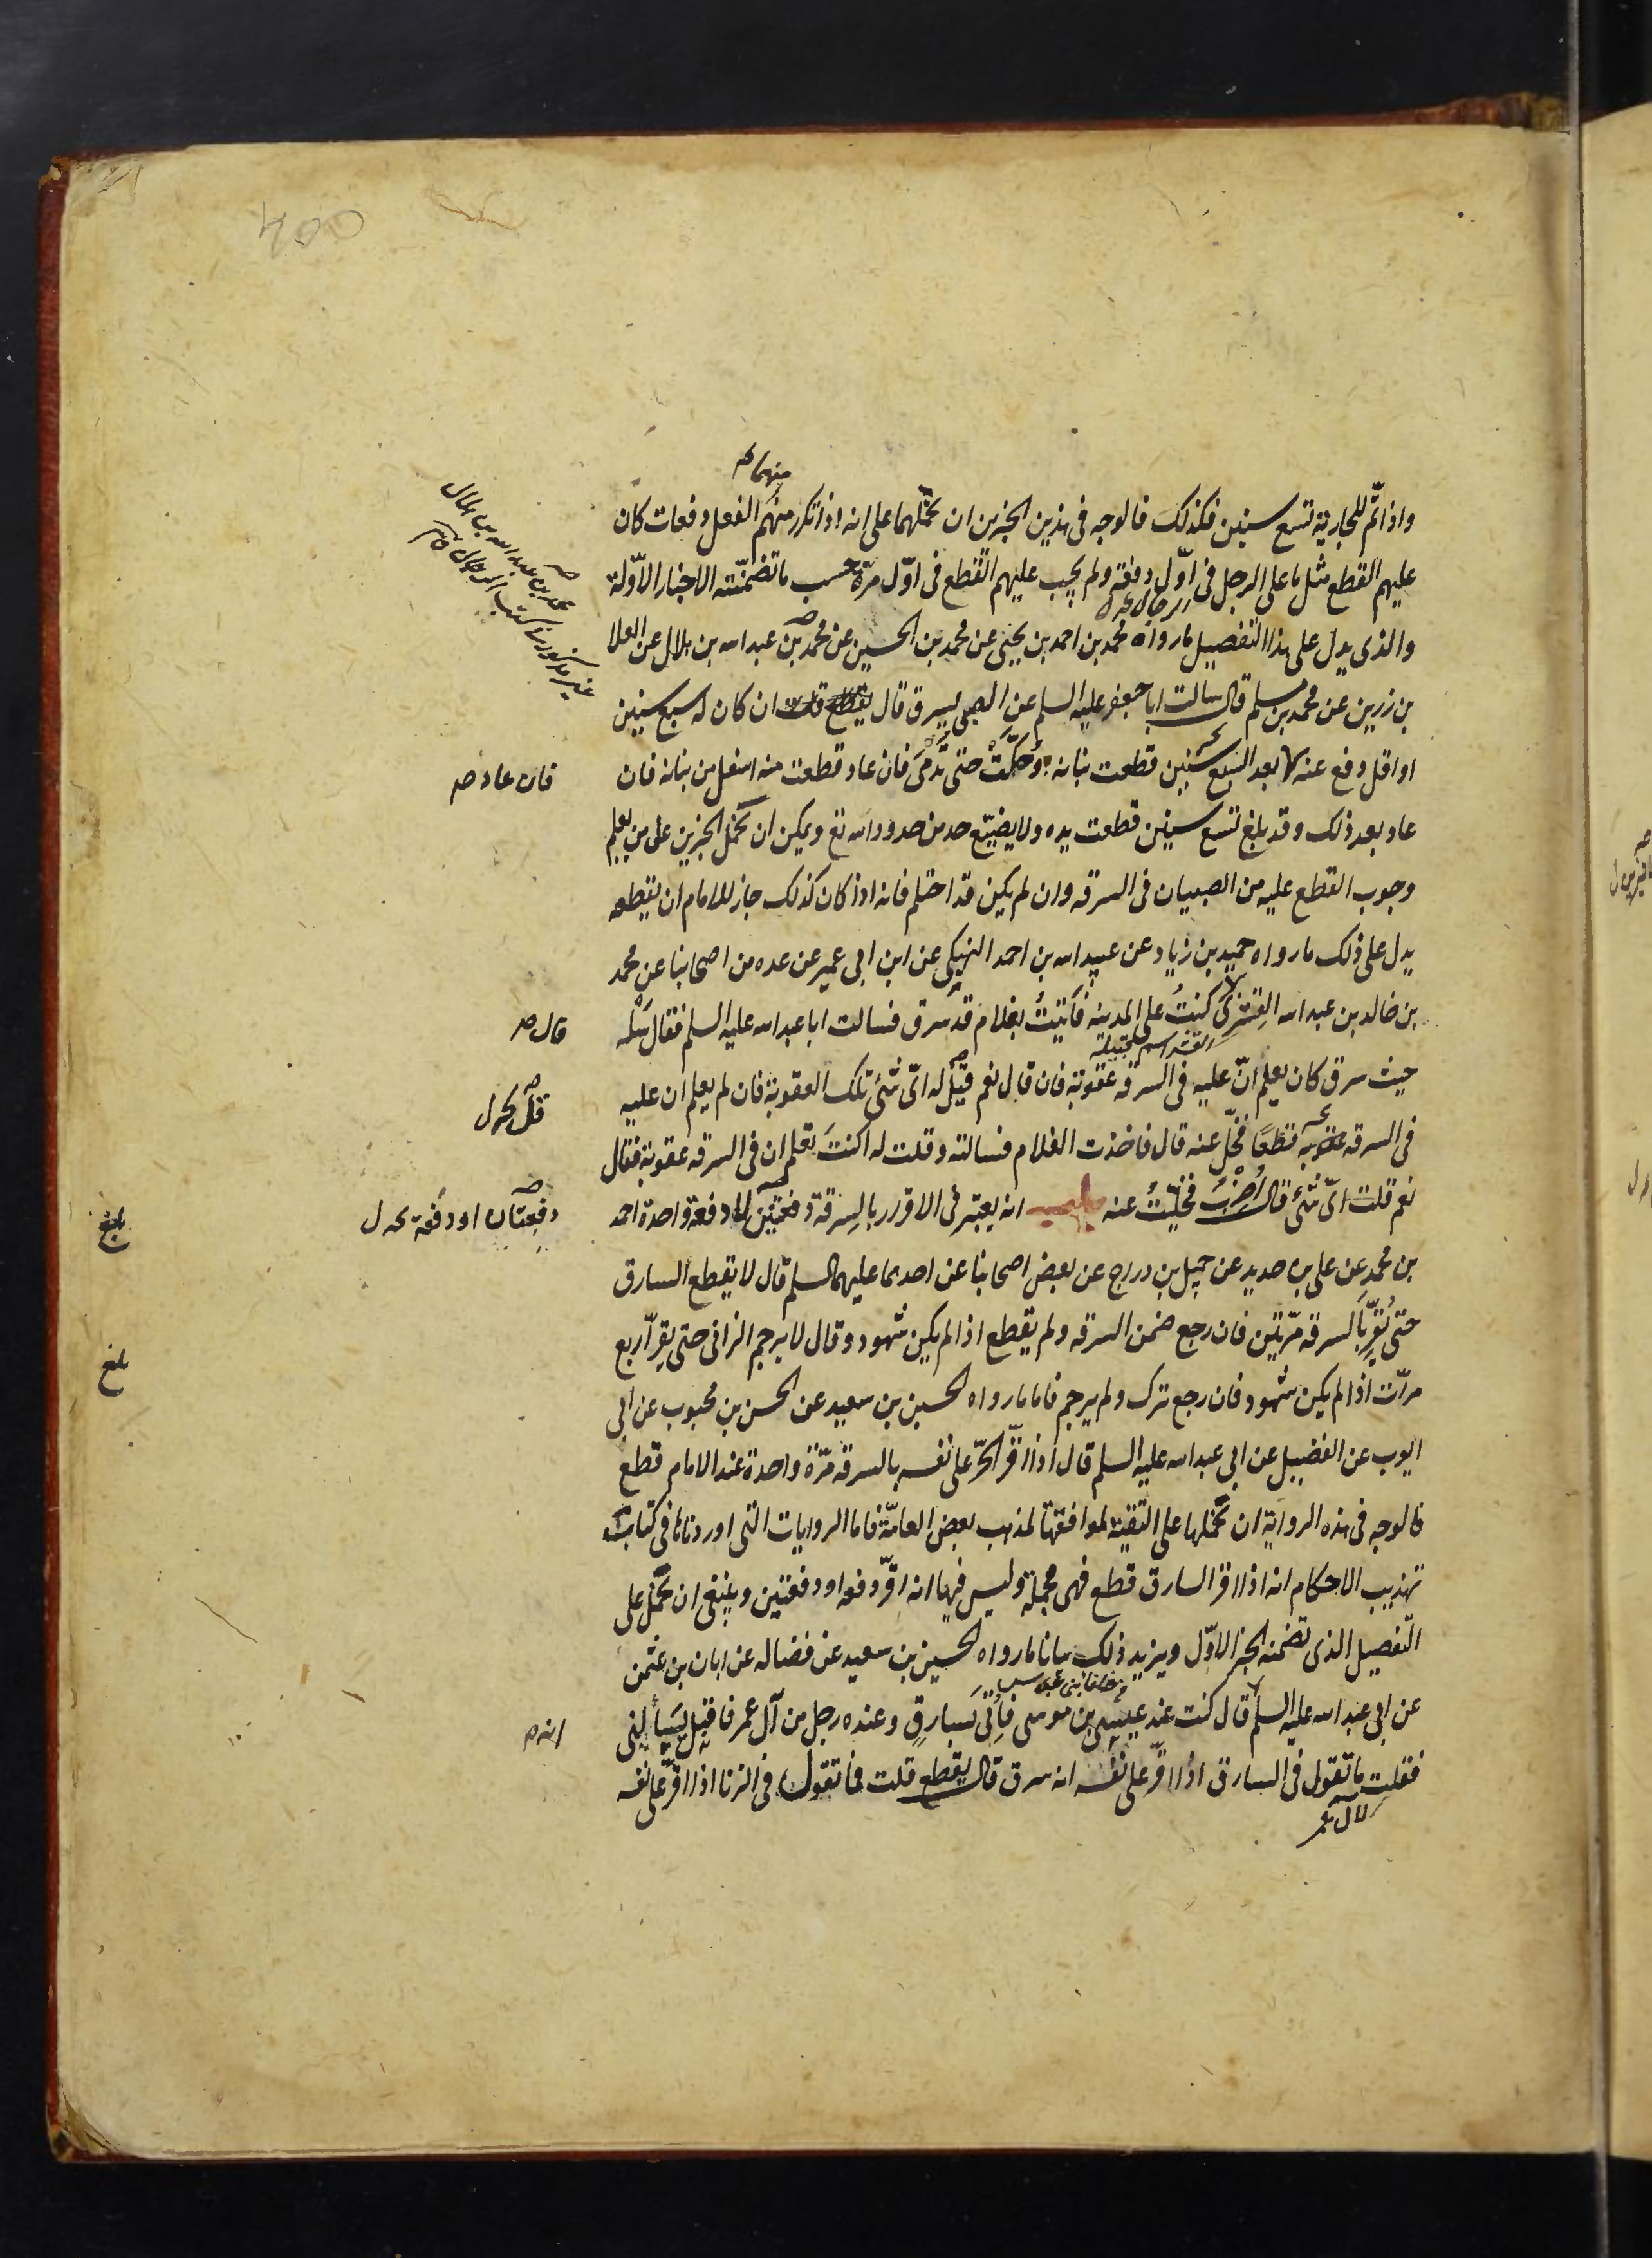 منهما
واذا تم للجارية تسع سنين فكذلك فالوجه فى هذين الخبرين ان نحملهما على انه اذا تكرر منهم الفعل دفعات كان
عليهم القطع مثل ما على الرجل فى اول دفعة ولم يجب عليهم القطع فى اوّل مرّة حسب ما تضمنته الاخبار الاوّلة
والذى يدل على هذا التفصيل ما رواه محمد بن احمد بن يحيى عن محمد بن الحسين عن محمد بن عبد الله بن هلال عن العلا
محمد بن عبد الله بن هلال
غير مذكور فى كتب الرجال
بن زرين عن محمد بن مسلم قال سالت ابا جعفر عليه السلم عن الصبى يسرق قال ان كان له سبع سنين
او اقل دفع عنه بعد السبع سنين قطعت بنانه او حكّت حتى تدمى فان عاد قطعت منه اسفل من بنانه فان
فان عاد
عاد بعد ذلك وقد بلغ تسع سنين قطعت يده ولا يضيّع حد من حدود الله تع ويمكن ان نحمل الخبرين على من يعلم
وجوب القطع عليه من الصبيان فى السرقه وان لم يكن قد احتلم فانه اذا كان كذلك جاز للامام ان يقطعه
يدل على ذلك ما رواه حميد بن زياد عن عبيد الله بن احمد النهيكى عن ابن ابى عمير عن عده من اصحابنا عن محمد
بن خالد بن عبد الله القسرى كنتُ على المدينه فاتيتُ بغلام قد سرق فسالت ابا عبد الله عليه السلم فقال سله
قال
القسر اسم قبيلة
حيث سرق كان يعلم انّ عليه فى السرقه عقوبة فان قال نعم قيل له اىّ شئ تلك العقوبة فان لم يعلم ان عليه
قل
فى السرقه قطعًا فخلّ عنه قال فاخذت الغلام فسالته وقلت له اكنتَ تعلم ان فى السرقه عقوبة فقال
نعم قلت اىّ شئ قال أضرَبُ فخلّيتُ عنه باب انه يعتبر فى الاقرار بالسرقة دفعتين لا دفعة واحدة احمد
دفعتان او دفعة
بلغ
بن محمد عن على بن حديد عن جميل بن دراج عن بعض اصحابنا عن احدهما عليهما السلم قال لا يقطع السارق
حتى يُقرّ بالسرقه مرّتين فان رجع ضمن السرقه ولم يقطع اذا لم يكن شهود وقال لا يرجم الزانى حتى يقرّ اربع
بلغ
مرات اذا لم يكن شهود فان رجع ترك ولم يرجم فاما ما رواه الحسين بن سعيد عن الحسن بن محبوب عن ابى
ايوب عن الفضيل عن ابى عبد الله عليه السلم قال اذا اقرّ الحرّ على نفسه بالسرقه مرّة واحدة عند الامام قطع
فالوجه فى هذه الرواية ان نحملها على التقيّة لموافقتها لمذهب بعض العامّة فاما الروايات التى اوردناها فى كتاب
تهذيب الاحكام انه اذا اقر السارق قطع فهى مجملة وليس فيها انه اقرّ دفعه او دفعتين وينبغى ان نحمل على
التفصيل الذى تضمنه الخبر الاوّل ويزيد ذلك بيانا ما رواه الحسين بن سعيد عن فضاله عن ابان بن عثمن
عن ابى عبد الله عليه السلم قال كنت عند عيسى بن موسى فاُتى بسارقٍ وعنده رجل من آل عمر فاقبل يسألنى
فقلت ما تقول فى السارق اذا اقرّ على نفسه انه سرق قال يقطع قلت فما تقول فى الزنا اذا اقرّ على نفسه
انه
لآل عمر